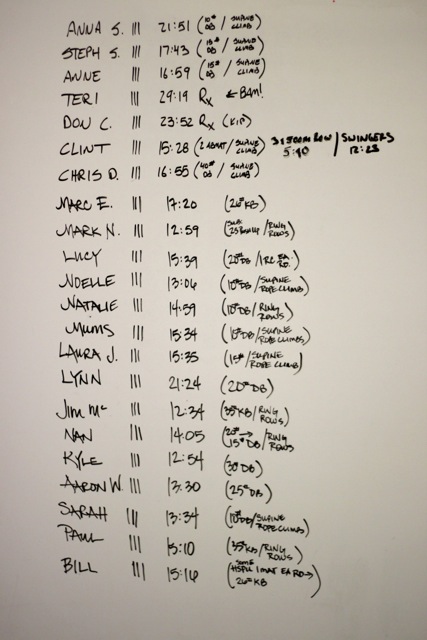 ANNA S. III 21:51 (10# DB / SUPINE CLIMB)
STEPH S. III 17:43 (15# DB / SUPINE CLIMB)
ANNE III 16:59 (15# DB / SUPINE CLIMB)
TERI III 29:19 Rx ← BAM!
DON C. III 23:52 Rx (KIP)
CLINT III 15:28 (2 ABMAT / SUPINE CLIMB) 31 500M ROW / SWINGERS
5:40 12:23
CHRIS D. III 16:55 (40# DB / SUPINE CLIMB)
MARC E. III 17:20 (26# KB)
MARK N. III 12:59 (SUB: 25 / RING ROWS)
LUCY III 15:39 (20# DB / 1 RC EA. RD.)
NOELLE III 13:06 (10# DB / SUPINE ROPE CLIMB)
NATALIE III 14:59 (10# DB / RING ROWS)
MUMS III 15:34 (10# DB / SUPINE ROPE CLIMBS)
LAURA J. III 15:35 (15# / SUPINE ROPE CLIMB)
LYNN III 21:24 (20# DB)
JIM Mc III 12:34 (35# KB / RING ROWS)
NAN III 14:05 (20# → 15# DB / RING ROWS)
KYLE III 12:54 (30# DB)
AARON W. III 13:30 (25# DB)
SARAH III 13:34 (10# DB / SUPINE ROPE CLIMB)
PAUL III 15:10 (35# KB / RING ROWS)
BILL III 15:16 (SOME HSPU 1 MAT EA RD → 26# KB)